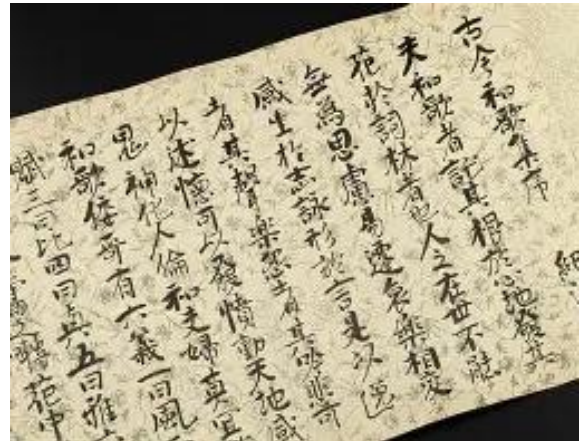 古今和歌集序 紀
夫和歌者託其根於心地發其
花於詞林者也人之在世不能
無為思慮易遷哀樂相變
感生於志詠形於言是以逸
者其聲楽怨者其吟悲可
以述懐可以發憤動天地感
鬼神化人倫和夫婦莫宜
和歌倭哥有六義一曰風
賦三曰比四曰興五曰雅
花中